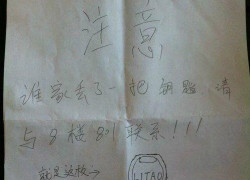 注意
谁家丢了一把钥匙请
与9楼81联系!!!
就是这枚→
LITAO